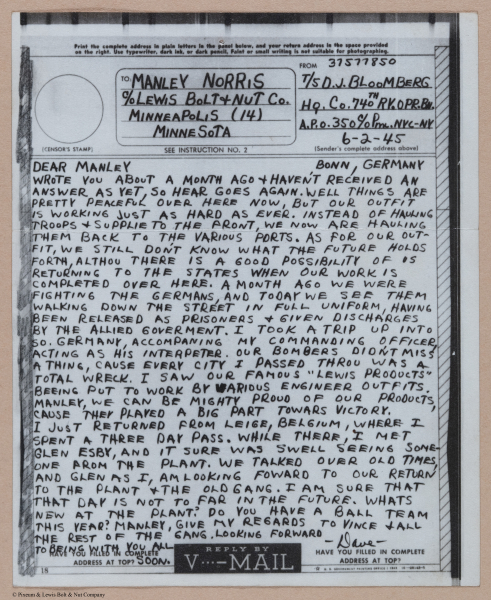 Print the complete address in plain letters in the panel below, and your return address in the space provided
on the right. Use typewriter, dark ink, or dark pencil. Faint or small writing is not suitable for photographing.
FROM 37577850
TO: MANLEY NORRIS
% LEWIS BOLT & NUT CO.
MINNEAPOLIS (14)
MINNESOTA
T/5 D.J. BLOOMBERG
HQ. CO. 740TH RK OPR. BN.
A.P.O. 350 % P.M. NYC-NY
6-2-45
(CENSOR'S STAMP)
SEE INSTRUCTION NO. 2
(Sender's complete address above)
DEAR MANLEY BONN, GERMANY
WROTE YOU ABOUT A MONTH AGO & HAVEN'T RECEIVED AN
ANSWER AS YET, SO HEAR GOES AGAIN. WELL THINGS ARE
PRETTY PEACEFUL OVER HERE NOW, BUT OUR OUTFIT
IS WORKING JUST AS HARD AS EVER. INSTEAD OF HAULING
TROOPS & SUPPLIE TO THE FRONT, WE NOW ARE HAULING
THEM BACK TO THE VARIOUS PORTS. AS FOR OUR OUT-
FIT, WE STILL DON'T KNOW WHAT THE FUTURE HOLDS
FORTH, ALTHOU THERE IS A GOOD POSSIBILITY OF US
RETURNING TO THE STATES WHEN OUR WORK IS
COMPLETED OVER HERE. A MONTH AGO WE WERE
FIGHTING THE GERMANS, AND TODAY WE SEE THEM
WALKING DOWN THE STREET IN FULL UNIFORM, HAVING
BEEN RELEASED AS PRISONERS & GIVEN DISCHARGES
BY THE ALLIED GOVERMENT. I TOOK A TRIP UP INTO
SO. GERMANY, ACCOMPANING MY COMMANDING OFFICER,
ACTING AS HIS INTERPETER. OUR BOMBERS DIDN'T MISS
A THING, CAUSE EVERY CITY I PASSED THROU WAS A
TOTAL WRECK. I SAW OUR FAMOUS "LEWIS PRODUCTS"
BEEING PUT TO WORK BY VARIOUS ENGINEER OUTFITS.
MANLEY, WE CAN BE MIGHTY PROUD OF OUR PRODUCTS,
CAUSE THEY PLAYED A BIG PART TOWARS VICTORY.
I JUST RETURNED FROM LEIGE, BELGIUM, WHERE I
SPENT A THREE DAY PASS. WHILE THERE, I MET
GLEN ESBY, AND IT SURE WAS SWELL SEEING SOME-
ONE FROM THE PLANT. WE TALKED OVER OLD TIMES,
AND GLEN AS I, AM LOOKING FOWARD TO OUR RETURN
TO THE PLANT & THE OLD GANG. I AM SURE THAT
THAT DAY IS NOT TO FAR IN THE FUTURE. WHATS
NEW AT THE PLANT? DO YOU HAVE A BALL TEAM
THIS YEAR? MANLEY, GIVE MY REGARDS TO VINCE & ALL
THE REST OF THE GANG. LOOKING FORWARD
TO BEING WITH YOU ALL SOON.
-Dave-
HAVE YOU FILLED IN COMPLETE
ADDRESS AT TOP?
REPLY BY
V···–MAIL
HAVE YOU FILLED IN COMPLETE
ADDRESS AT TOP?
18
© Pinrem & Lewis Bolt & Nut Company